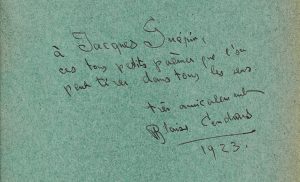 à Jacques Guérin,
ces tous petits poèmes que l'on
peut tirer dans tous les sens
très amicalement
Blaise Cendrars
1923.